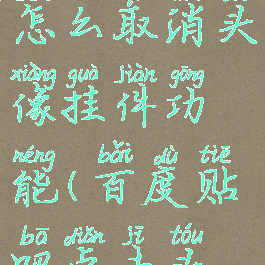 怎么取消头
xiàng guà jiàn gōng
像挂件功
néng bǎi dù tiē
能(百度贴
bā diǎn jī tóu